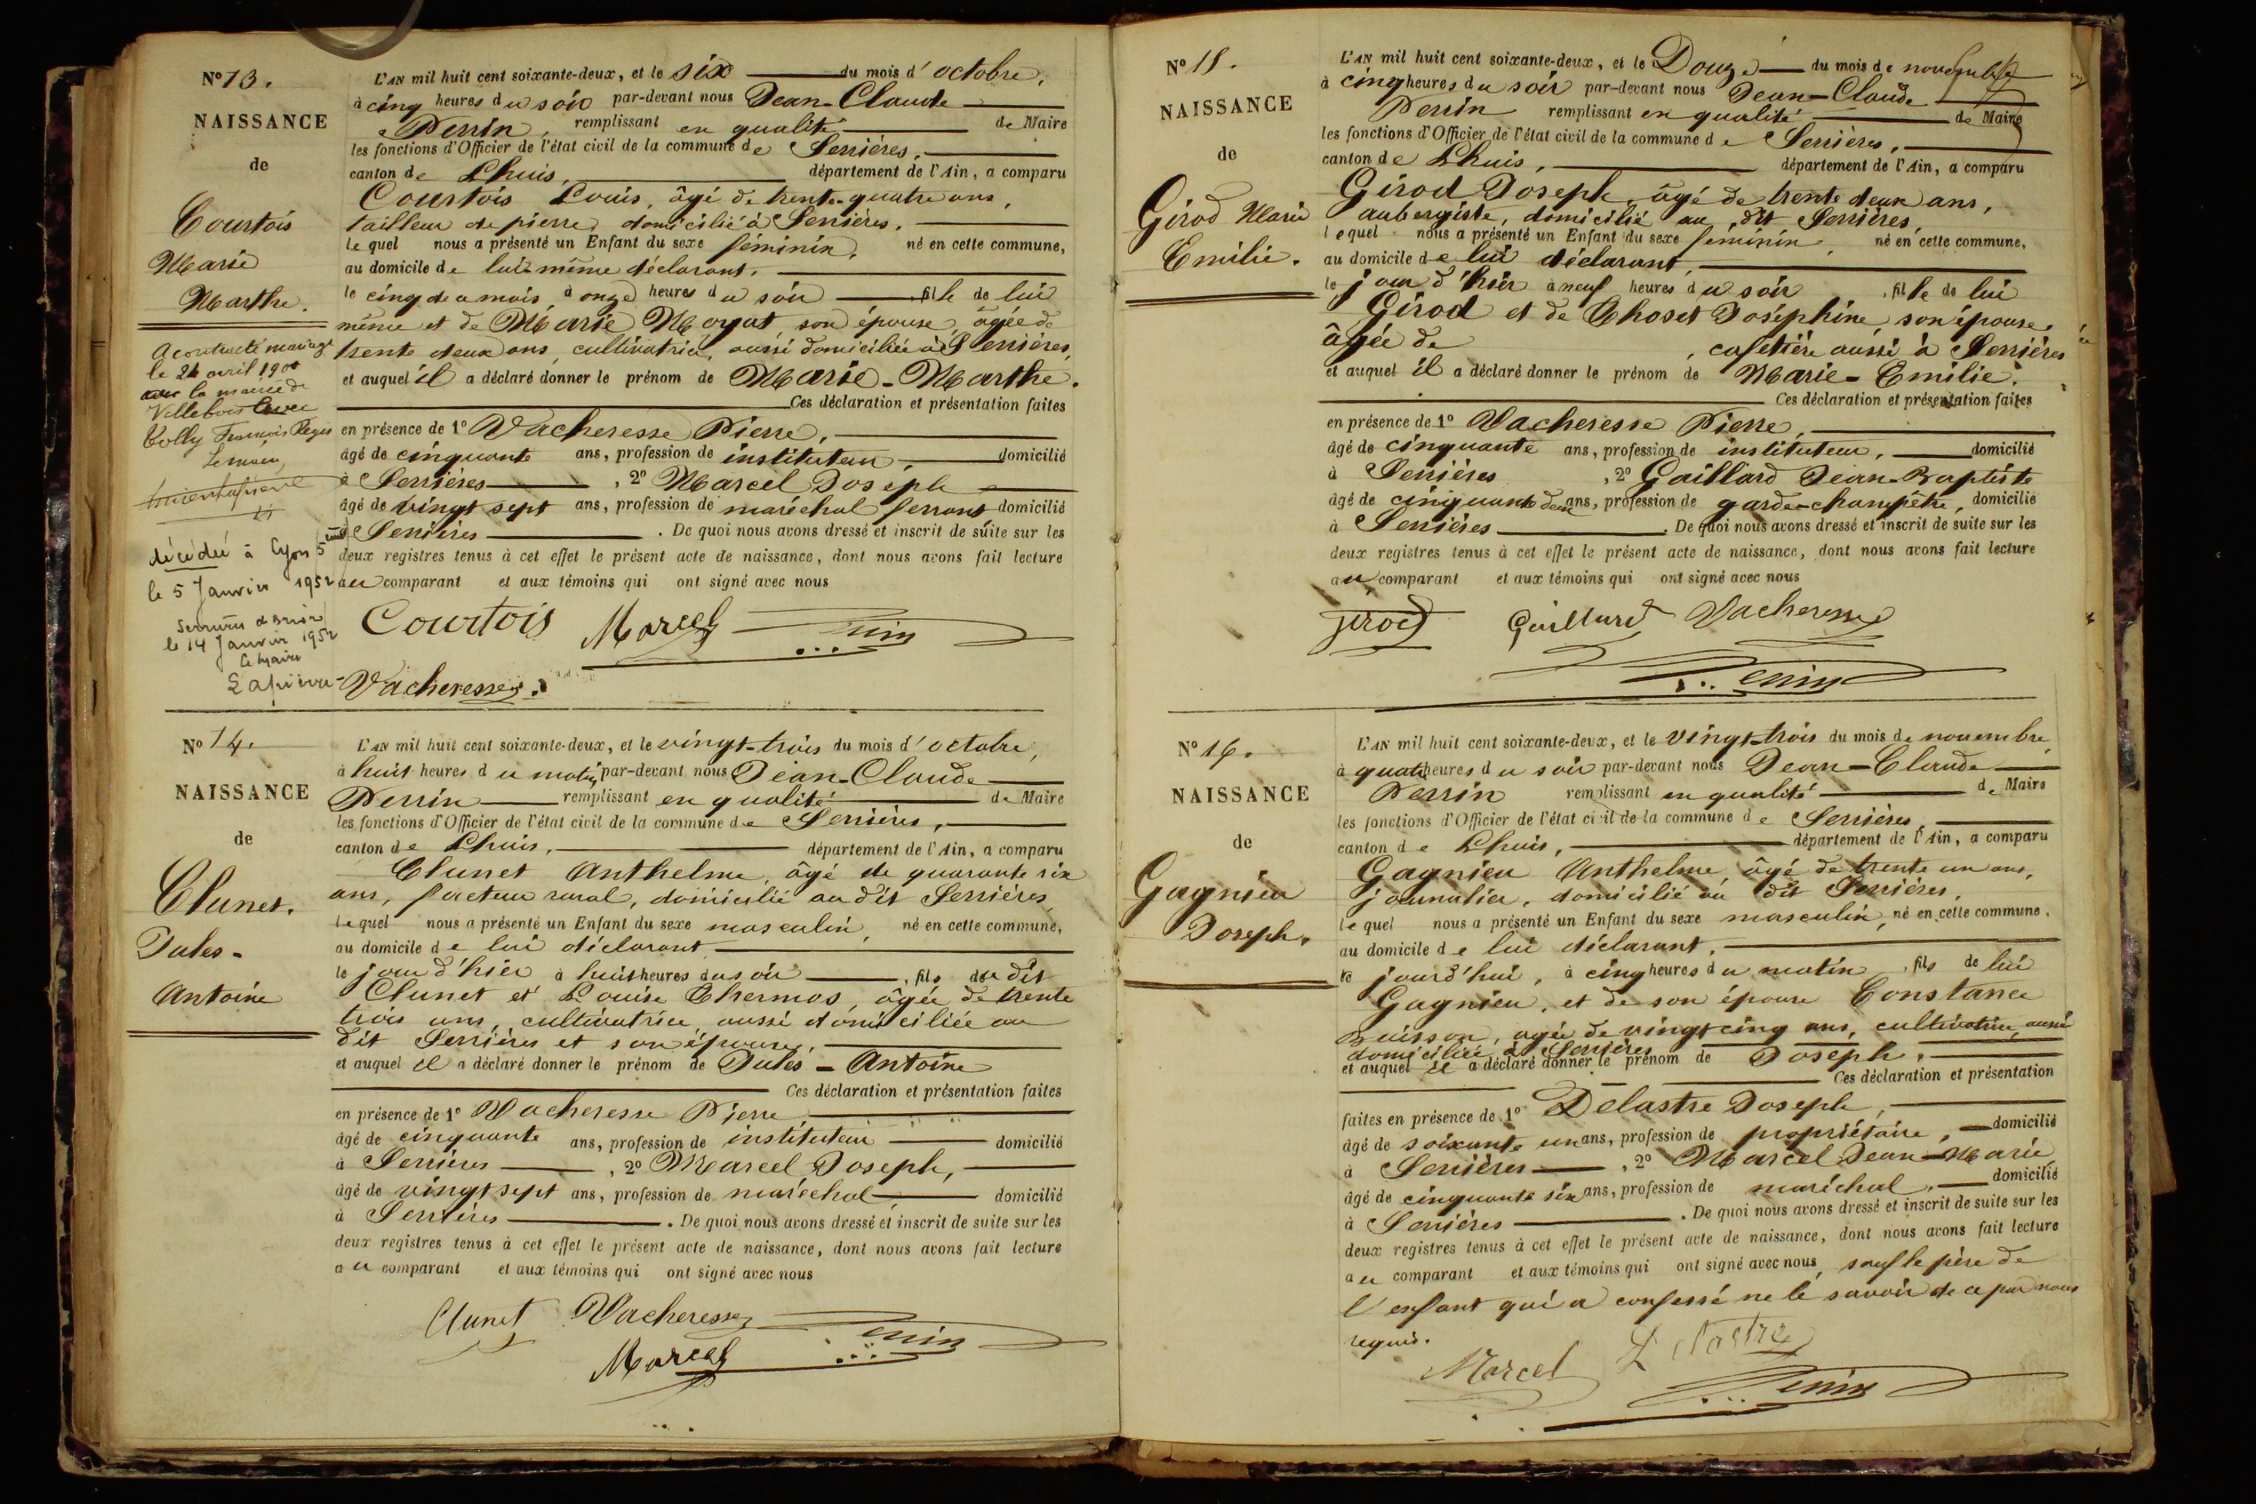 N° 13.
NAISSANCE
de
Courtois
Marie
Marthe.
A contracté mariage
le 24 avril 1900
avec la mairie de
Villebois avec
François Régis
Le maire,
décédée à Lyon 5ème
le 5 Janvier 1952
Serrières de Briord
le 14 Janvier 1952
Le Maire
L'AN mil huit cent soixante-deux, et le six du mois d'octobre,
à cinq heures du soir par-devant nous Jean-Claude
Perrin, remplissant en qualité de Maire
les fonctions d'Officier de l'état civil de la commune de Serrières,
canton de Lhuis, département de l'Ain, a comparu
Courtois Louis, âgé de trente-quatre ans,
tailleur de pierre, domicilié à Serrières.
le quel nous a présenté un Enfant du sexe féminin, né en cette commune,
au domicile de lui même déclarant,
le cinq de ce mois, à onze heures du soir, fille de lui
même et de Marie Moryat, son épouse, âgée de
trente deux ans, cultivatrice, aussi domiciliée à Serrières,
et auquel il a déclaré donner le prénom de Marie-Marthe.
Ces déclaration et présentation faites
en présence de 1° Vacheresse Pierre,
âgé de cinquante ans, profession de instituteur, domicilié
à Serrières, 2° Marcel Joseph
âgé de vingt sept ans, profession de maréchal ferrant domicilié
à Serrières. De quoi nous avons dressé et inscrit de suite sur les
deux registres tenus à cet effet le présent acte de naissance, dont nous avons fait lecture
au comparant et aux témoins qui ont signé avec nous
Courtois Marcel Perrin
Vacheresse
N° 14.
NAISSANCE
de
Clunet.
Jules-
Antoine
L'AN mil huit cent soixante-deux, et le vingt-trois du mois d'octobre,
à huit heures du matin, par-devant nous Jean-Claude
Perrin remplissant en qualité de Maire
les fonctions d'Officier de l'état civil de la commune de Serrières,
canton de Lhuis, département de l'Ain, a comparu
Clunet Anthelme, âgé de quarante six
ans, facteur rural, domicilié au dit Serrières,
le quel nous a présenté un Enfant du sexe masculin, né en cette commune,
au domicile de lui déclarant
le jour d'hier à huit heures du soir, fils du dit
Clunet et Louise Thermos, âgée de trente
trois ans, cultivatrice, aussi domiciliée au
dit Serrières et son épouse,
et auquel il a déclaré donner le prénom de Jules-Antoine
Ces déclaration et présentation faites
en présence de 1° Vacheresse Pierre
âgé de cinquante ans, profession de instituteur domicilié
à Serrières, 2° Marcel Joseph,
âgé de vingt sept ans, profession de maréchal domicilié
à Serrières. De quoi nous avons dressé et inscrit de suite sur les
deux registres tenus à cet effet le présent acte de naissance, dont nous avons fait lecture
au comparant et aux témoins qui ont signé avec nous
Clunet Vacheresse Perrin
Marcel
N° 15.
NAISSANCE
de
Girod Marie
Emilie.
L'AN mil huit cent soixante-deux, et le Douze du mois de novembre
à cinq heures du soir par-devant nous Jean-Claude
Perrin remplissant en qualité de Maire
les fonctions d'Officier de l'état civil de la commune de Serrières,
canton de Lhuis, département de l'Ain, a comparu
Girod Joseph, âgé de trente deux ans,
aubergiste, domicilié au dit Serrières,
lequel nous a présenté un Enfant du sexe féminin, né en cette commune,
au domicile de lui déclarant,
le jour d'hier à neuf heures du soir, fille de lui
Girod et de Choset Joséphine, son épouse,
âgée de , cafetière aussi à Serrières
et auquel il a déclaré donner le prénom de Marie-Emilie.
Ces déclaration et présentation faites
en présence de 1° Vacheresse Pierre,
âgé de cinquante ans, profession de instituteur, domicilié
à Serrières, 2° Gaillard Jean-Baptiste
âgé de cinquante deux ans, profession de garde-champêtre, domicilié
à Serrières. De quoi nous avons dressé et inscrit de suite sur les
deux registres tenus à cet effet le présent acte de naissance, dont nous avons fait lecture
au comparant et aux témoins qui ont signé avec nous
Girod Gaillard Vacheresse
Perrin
N° 16.
NAISSANCE
de
Gagnieu
Joseph.
L'AN mil huit cent soixante-deux, et le vingt-trois du mois de novembre
à quatre heures du soir par-devant nous Jean-Claude
Perrin remplissant en qualité de Maire
les fonctions d'Officier de l'état civil de la commune de Serrières,
canton de Lhuis, département de l'Ain, a comparu
Gagnieu Anthelme, âgé de trente un ans,
journalier, domicilié au dit Serrières,
le quel nous a présenté un Enfant du sexe masculin, né en cette commune,
au domicile de lui déclarant,
ce jourd'hui, à cinq heures du matin, fils de lui
Gagnieu, et de son épouse Constance
Buisson, agée de vingt cinq ans, cultivatrice, aussi
domiciliée à Serrières
et auquel il a déclaré donner le prénom de Joseph.
Ces déclaration et présentation
faites en présence de 1° Delastre Joseph,
âgé de soixante un ans, profession de propriétaire, domicilié
à Serrières, 2° Marcel Jean-Marie
âgé de cinquante six ans, profession de maréchal, domicilié
à Serrières. De quoi nous avons dressé et inscrit de suite sur les
deux registres tenus à cet effet le présent acte de naissance, dont nous avons fait lecture
au comparant et aux témoins qui ont signé avec nous, sauf le père de
l'enfant qui a confessé ne le savoir de ce par nous
requis.
Marcel Delastre
Perrin